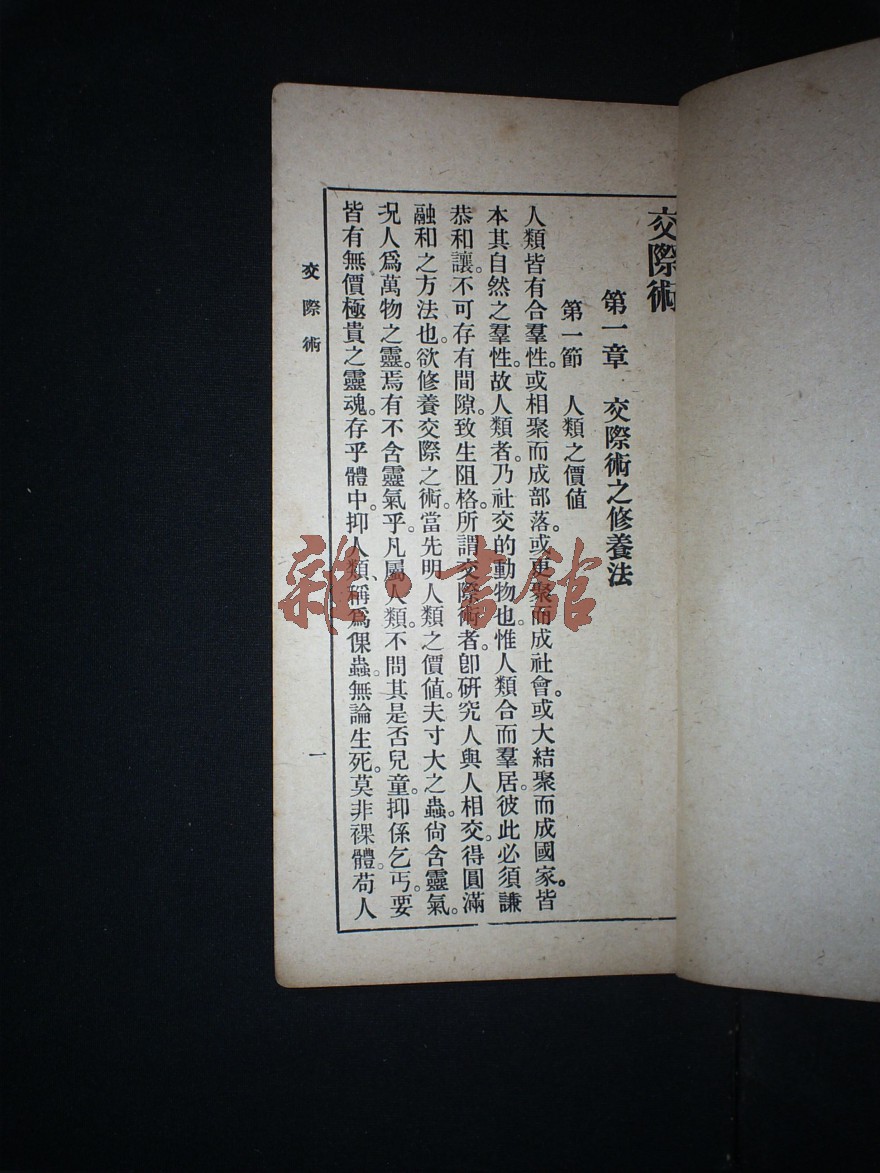 交際術
第一章　交際術之修養法
第一節　人類之價值
人類皆有合羣性。或相聚而成部落。或更聚而成社會。或大結聚而成國家。皆
本其自然之羣性。故人類者。乃社交的動物也。惟人類合而羣居。彼此必須謙
恭和讓。不可存有間隙。致生阻格。所謂交際術者。卽研究人與人相交。得圓滿
融和之方法也。欲修養交際之術。當先明人類之價值。夫寸大之蟲。尙含靈氣。
况人爲萬物之靈。焉有不含靈氣乎。凡屬人類。不問其是否兒童。抑係乞丐。要
皆有無價極貴之靈魂。存乎體中。抑人類、稱爲倮蟲。無論生死。莫非裸體。苟人
交際術
一
雜·書館